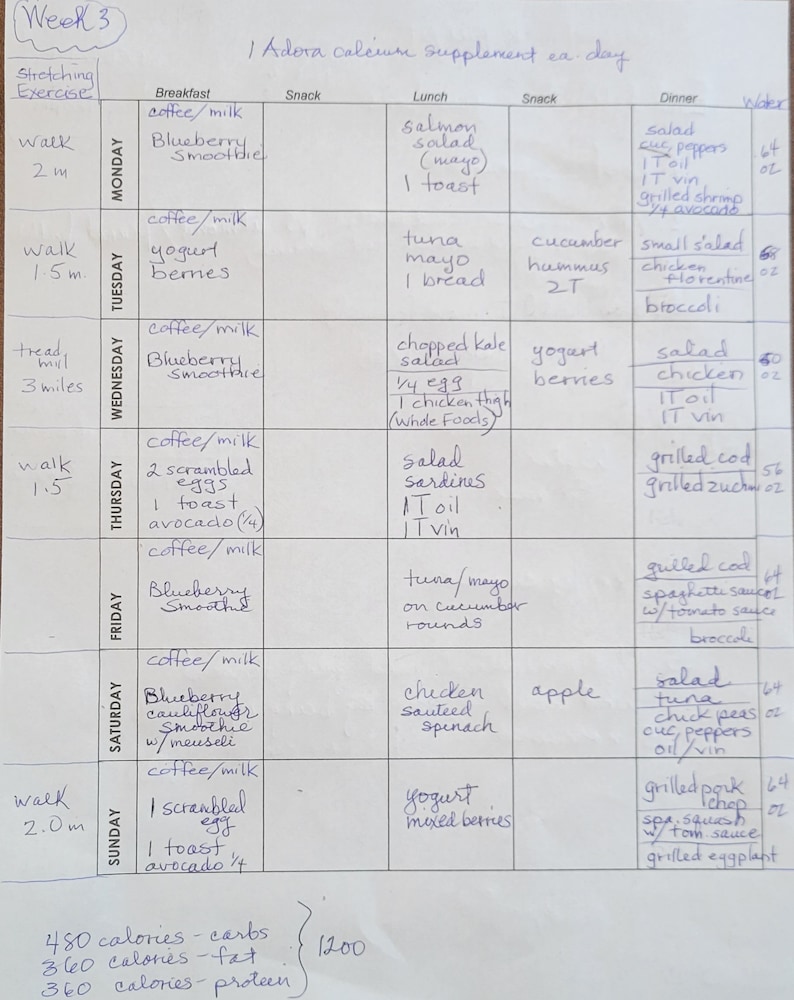 Week 3
1 Adora calcium supplement ea. day
Stretching
Exercise
Breakfast
Snack
Lunch
Snack
Dinner
Water
walk
2 m
MONDAY
coffee/milk
Blueberry
Smoothie
salmon
salad
(mayo)
1 toast
salad
cuc, peppers
1 T oil
1 T vin
grilled shrimp
1/4 avocado
64
oz
walk
1.5 m.
TUESDAY
coffee/milk
yogurt
berries
tuna
mayo
1 bread
cucumber
hummus
2T
small salad
chicken
florentine
broccoli
oz
tread
mill
3 miles
WEDNESDAY
coffee/milk
Blueberry
Smoothie
chopped kale
salad
1/4 egg
1 chicken thigh
(Whole Foods)
yogurt
berries
salad
chicken
1T oil
1T vin
oz
walk
1.5
THURSDAY
coffee/milk
2 scrambled
eggs
1 toast
avocado (1/4)
salad
sardines
1 T oil
1 T vin
grilled cod
grilled
56
oz
FRIDAY
coffee/milk
Blueberry
Smoothie
tuna/mayo
on cucumber
rounds
grilled cod
spaghetti sauce
w/tomato sauce
broccoli
64
oz
SATURDAY
coffee/milk
Blueberry
cauliflower
smoothie
w/ meuseli
chicken
sauteed
spinach
apple
salad
tuna
chick peas
cuc, peppers
oil/vin
64
oz
walk
2.0 m
SUNDAY
coffee/milk
1 scrambled
egg
1 toast
avocado 1/4
yogurt
mixed berries
grilled pork
chop
spa. squash
w/ tom. sauce
grilled eggplant
64
oz
480 calories - carbs
360 calories - fat
360 calories - protein
1200